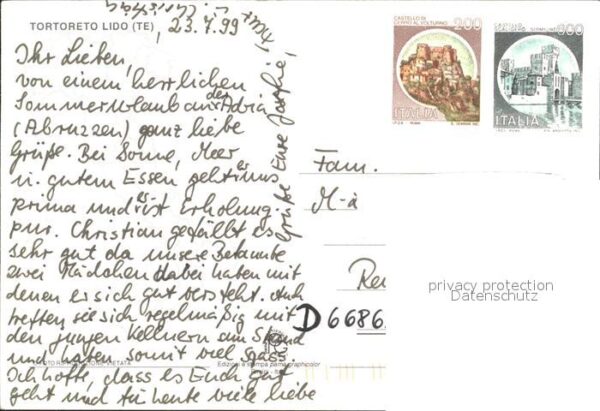 TORTORETO LIDO (TE)
23.7.99
Ihr Lieben,
von einem herrlichen
Sommerurlaub an der Adria
(Abruzzen) ganz liebe
Grüße. Bei Sonne, Meer
u. gutem Essen geht es uns
prima und es ist Erholung
pur. Christian gefällt es
sehr gut da unsere Bekannte
zwei Mädchen dabei haben mit
denen er sich gut versteht. Auch
treffen sie sich regelmäßig mit
den jungen Kellnern am Strand
und haben somit viel Spass.
Ich hoffe, dass es Euch gut
geht und für heute viele liebe
Grüße Eure
CASTELLO DI
CERRO AL VOLTURNO
200
ITALIA
800
ITALIA
Fam.
M-a
Re
D 6686
privacy protection
Datenschutz